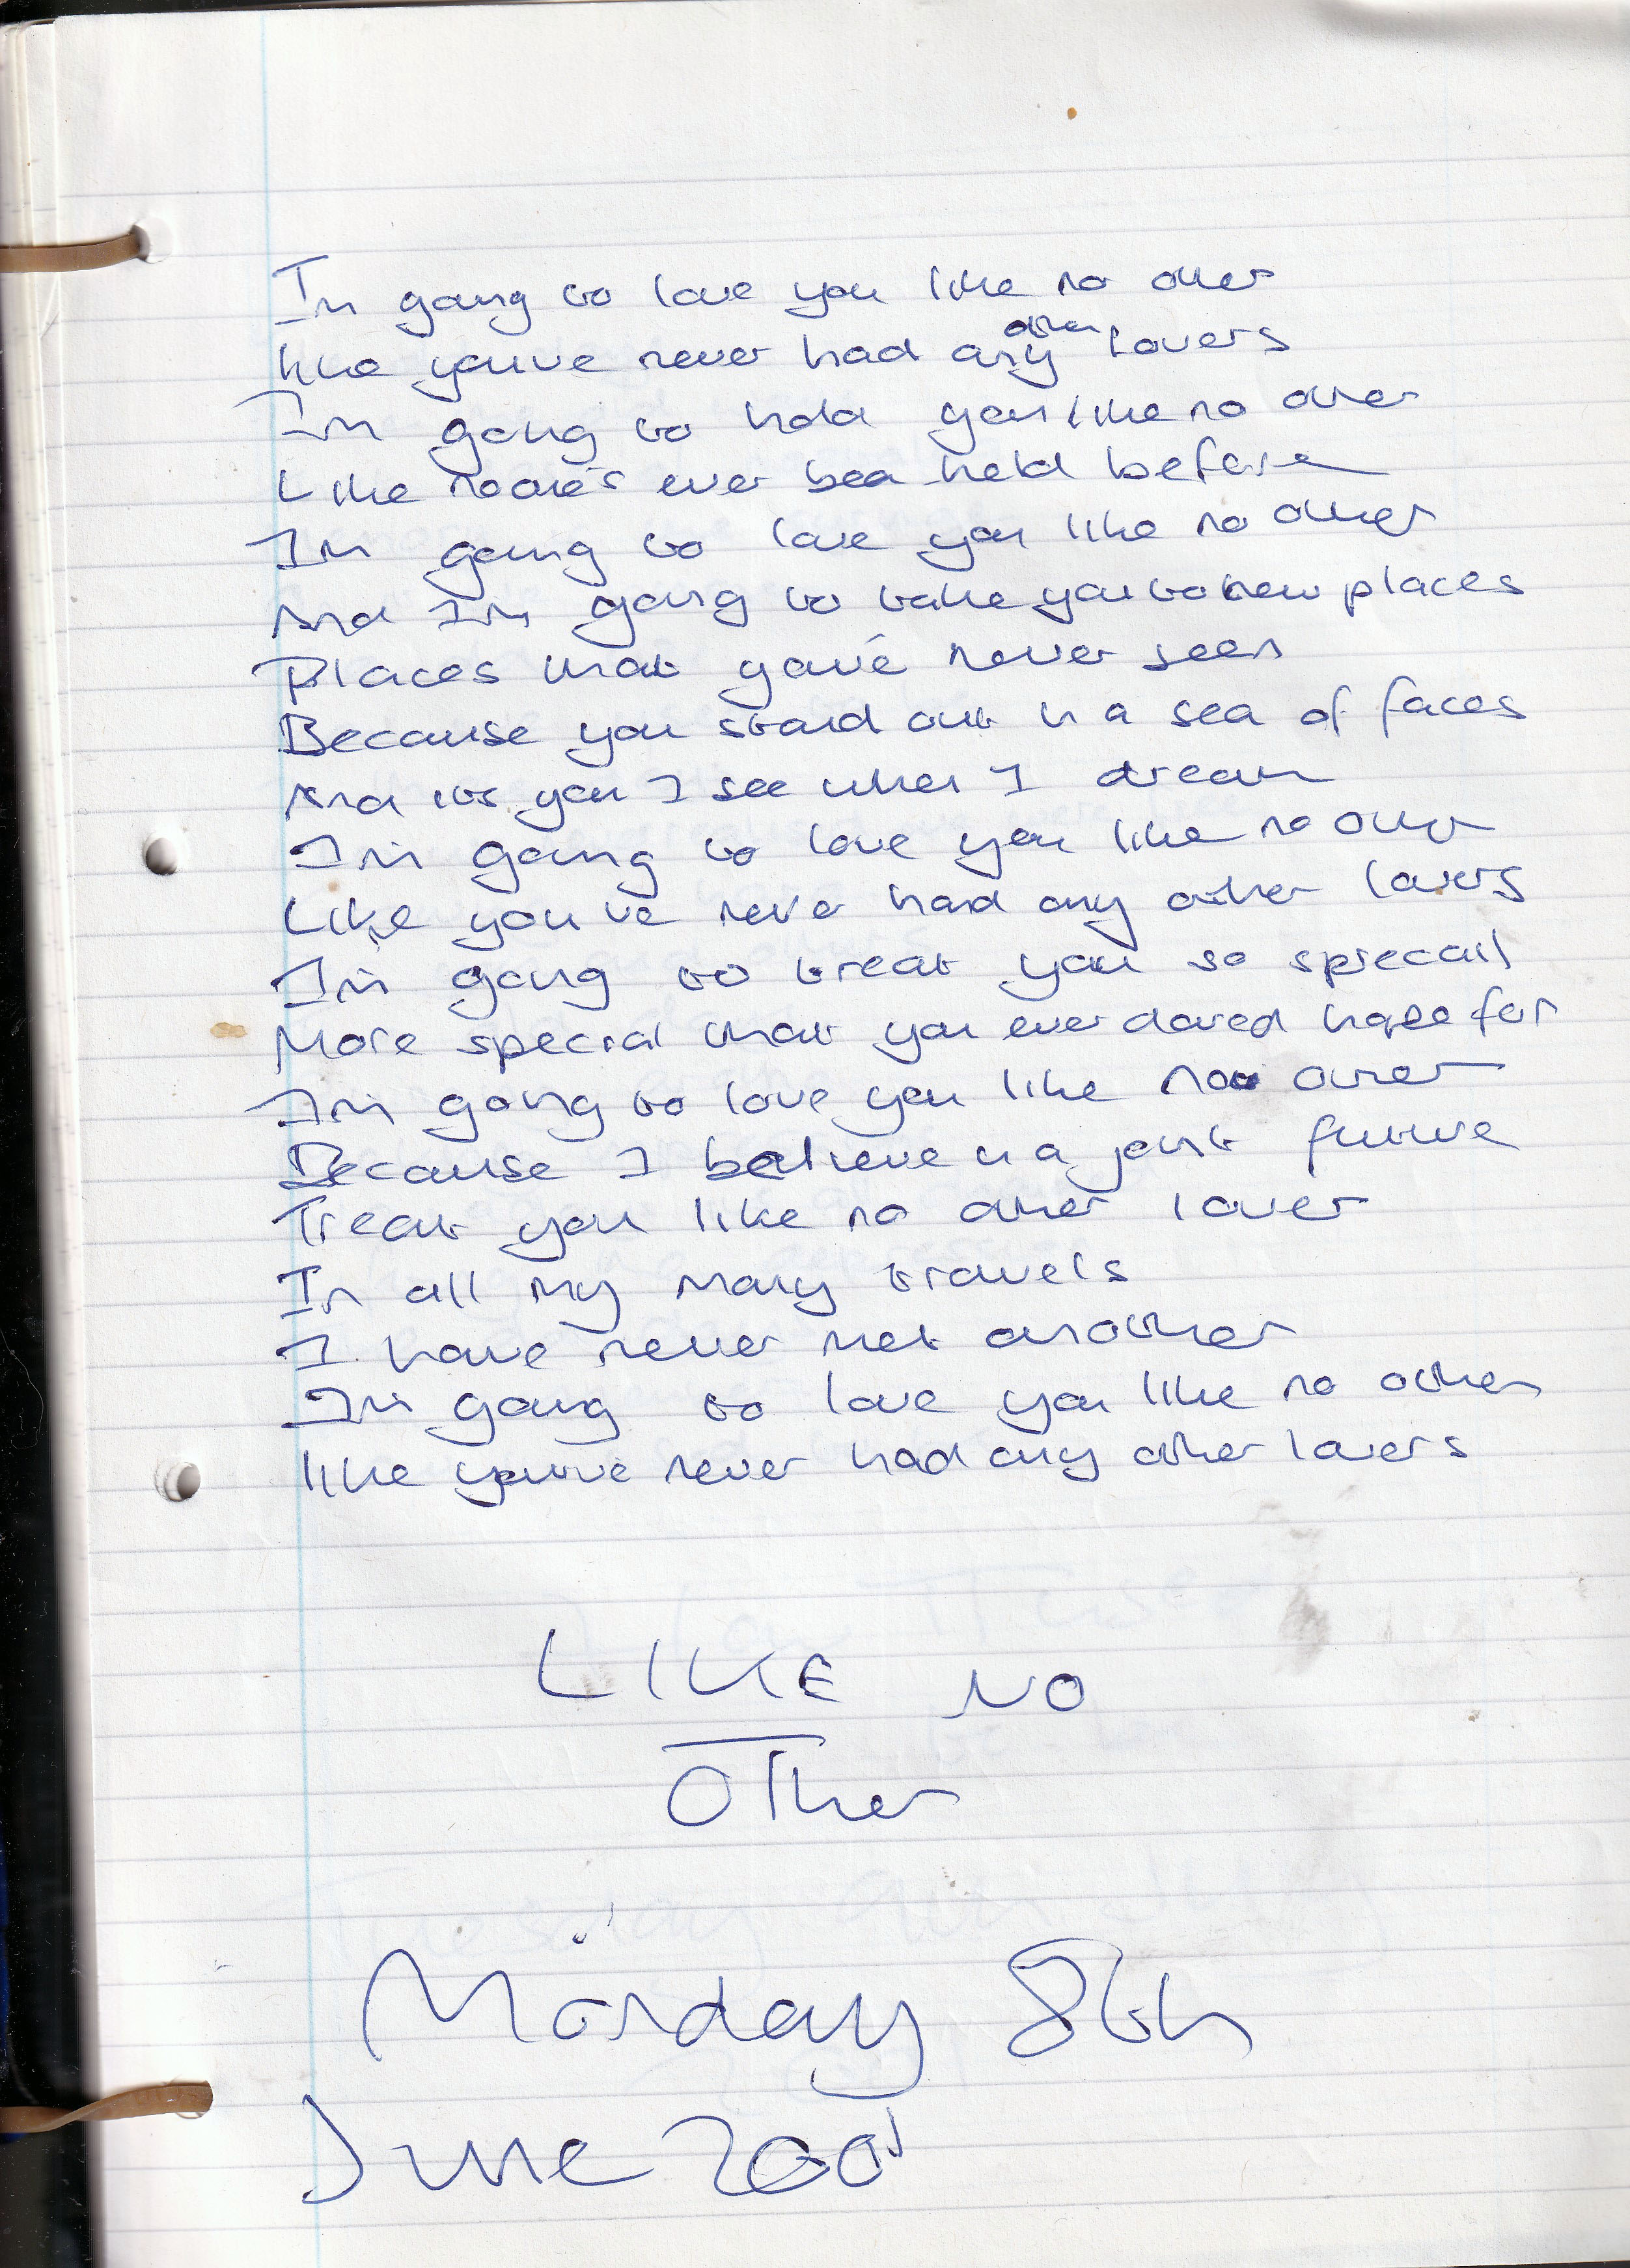 I'm going to love you like no other
like youve never had any other lovers
I'm going to hold you like no other
Like noone's ever been held before
I'm going to love you like no other
And I'm going to take you to new places
Places that you've never seen
Because you stand out in a sea of faces
And its you I see when I dream
I'm going to love you like no other
Like you've never had any other lovers
I'm going to treat you so sprecail
More special that you ever dared hope for
I'm going to love you like no other
Because I believe in a joint future
Treat you like no other lover
In all my many travels
I have never met another
I'm going to love you like no other
like youve never had any other lovers
LIKE NO
OTher
Monday 8th
June